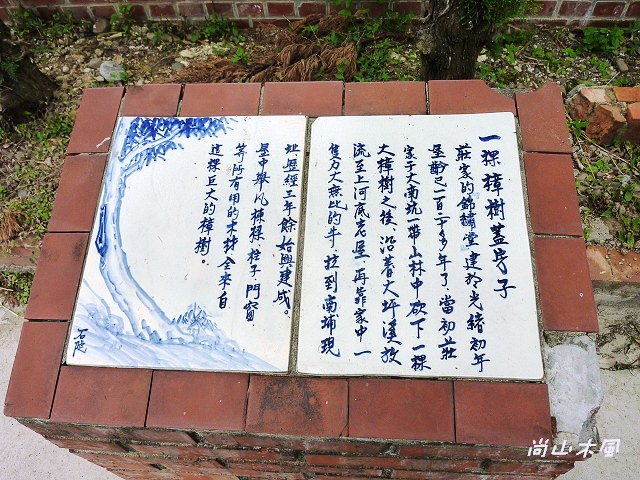 一棵樟樹蓋房子
莊家的錦繡堂建於光緒初年
至齡已一百二十多年了,當初莊
家于大南坑一帶山林中砍下一棵
大樟樹之後、沿著大坪溪放
流至上河底君屋、再靠家中一
隻力大無比的牛、拉到南埔現
址歷經三年餘始興建成。
屋中舉凡棟樑、柱子、門窗、
等所有用的木材全來自
這棵巨大的樟樹。
尚山木風